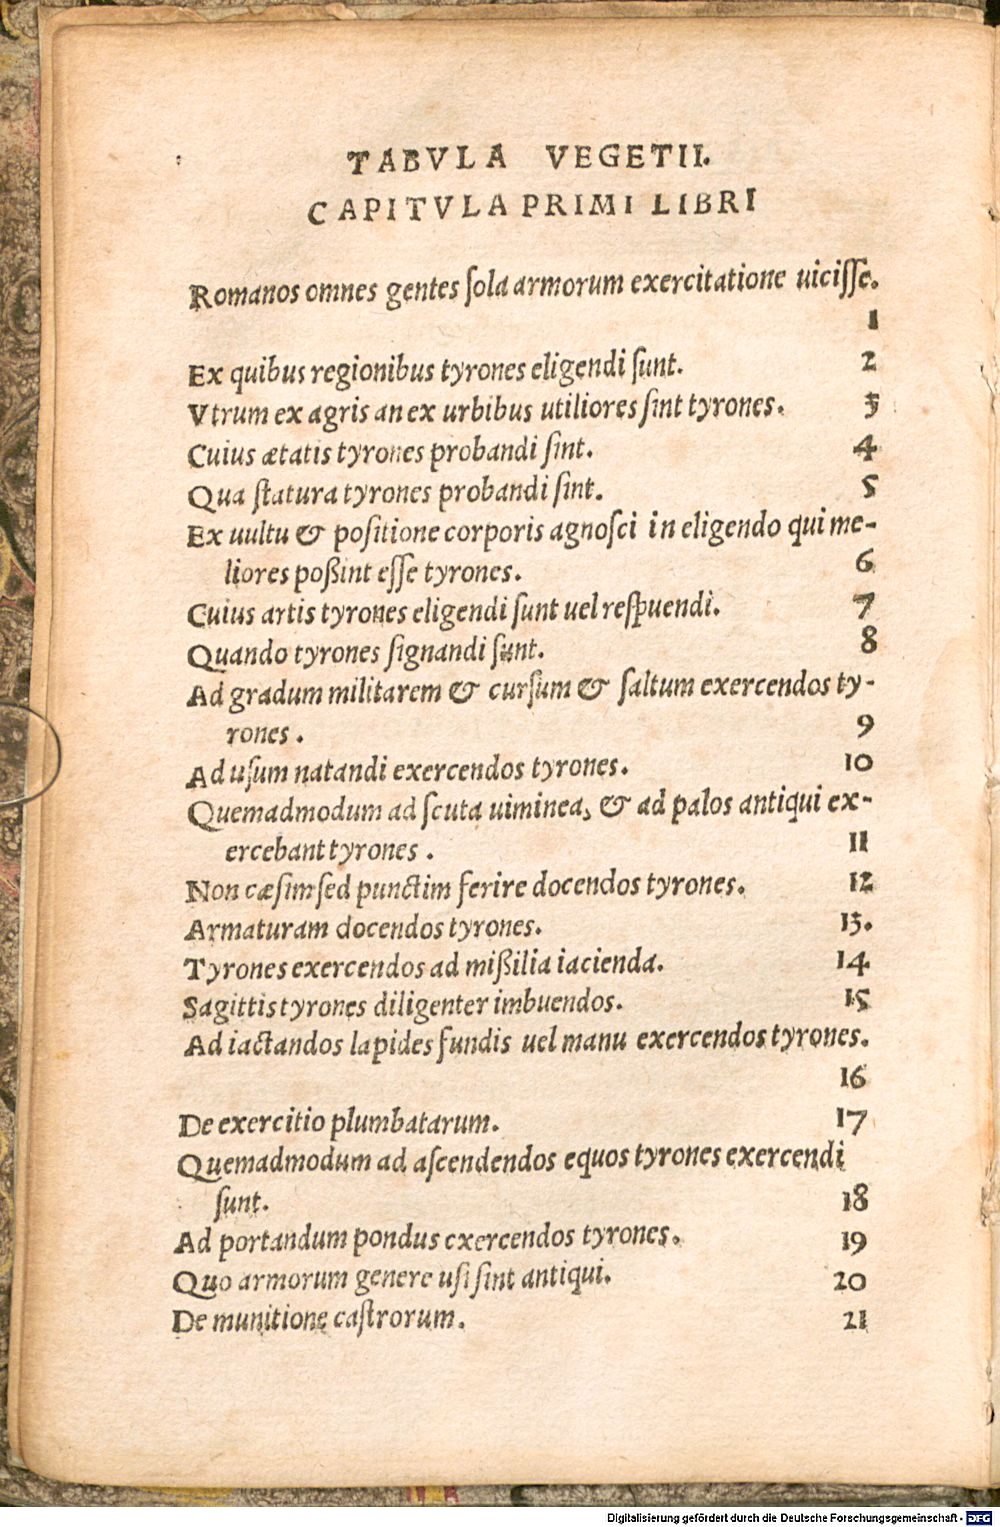 TABVLA VEGETII.
CAPITVLA PRIMI LIBRI
Romanos omnes gentes ſola armorum exercitatione uiciſſe.
1
Ex quibus regionibus tyrones eligendi ſunt. 2
Vtrum ex agris an ex urbibus utiliores ſint tyrones. 3
Cuius ætatis tyrones probandi ſint. 4
Qua ſtatura tyrones probandi ſint. 5
Ex uultu & poſitione corporis agnoſci in eligendo qui me-
liores poßint eſſe tyrones. 6
Cuius artis tyrones eligendi ſunt uel reſpuendi. 7
Quando tyrones ſignandi ſunt. 8
Ad gradum militarem & curſum & ſaltum exercendos ty-
rones. 9
Ad uſum natandi exercendos tyrones. 10
Quemadmodum ad ſcuta uiminea, & ad palos antiqui ex-
ercebant tyrones. 11
Non cæſim ſed punctim ferire docendos tyrones. 12
Armaturam docendos tyrones. 13.
Tyrones exercendos ad mißilia iacienda. 14
Sagittis tyrones diligenter imbuendos. 15
Ad iactandos lapides fundis uel manu exercendos tyrones.
16
De exercitio plumbatarum. 17
Quemadmodum ad aſcendendos equos tyrones exercendi
ſunt. 18
Ad portandum pondus exercendos tyrones. 19
Quo armorum genere uſi ſint antiqui. 20
De munitione caſtrorum. 21
Digitalisierung gefördert durch die Deutsche Forschungsgemeinschaft - DFG